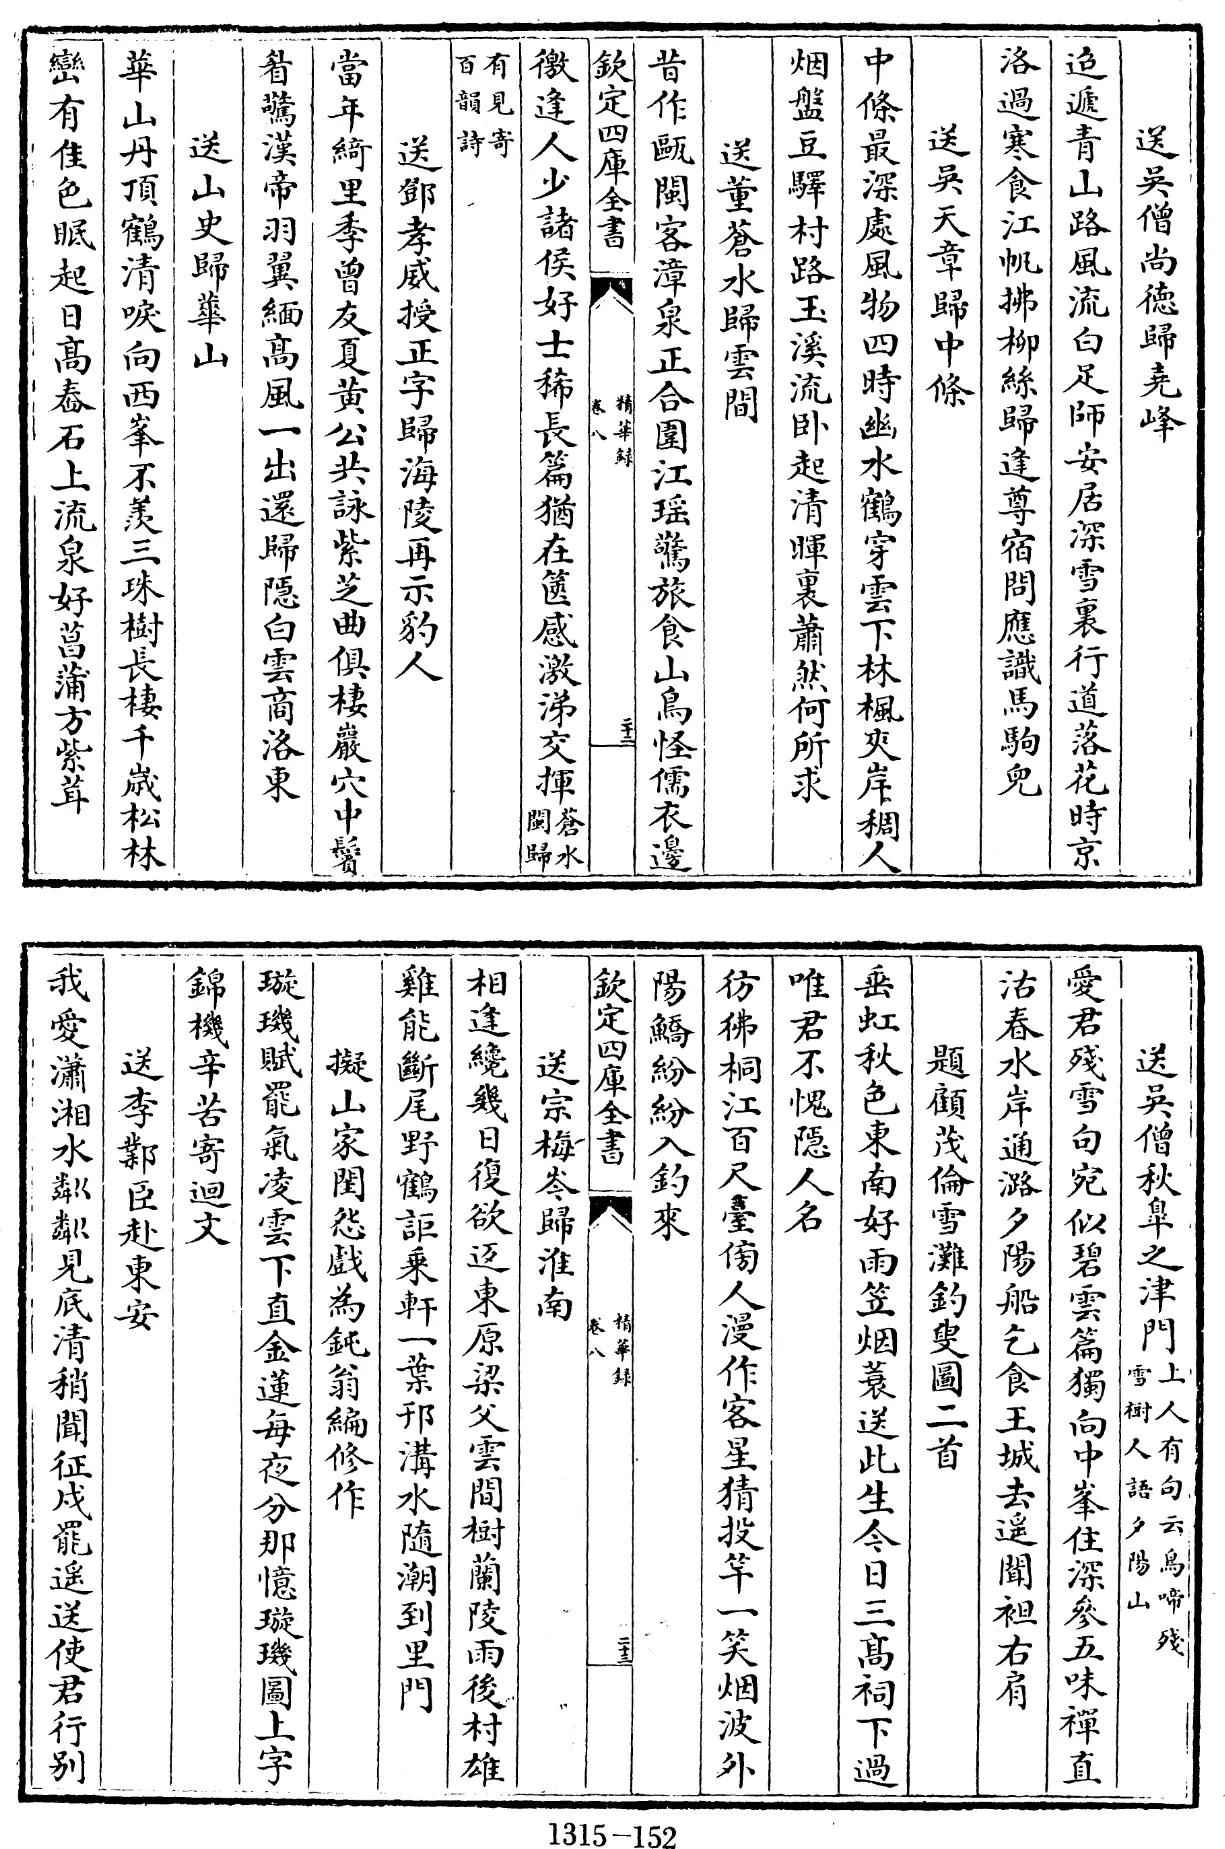 送吳僧尚德歸堯峰
迢遞青山路風流白足師安居深雪裏行道落花時京
洛過寒食江帆拂柳絲歸逢尊宿問應識馬駒兒
送吳天章歸中條
中條最深處風物四時幽水鶴穿雲下林楓夾岸稠人
烟盤豆驛村路玉溪流卧起清暉裏蕭然何所求
送董蒼水歸雲間
昔作甌閩客漳泉正合圍江瑶驚旅食山鳥怪儒衣邊
欽定四庫全書
精華録
卷八
二十二
徼逢人少諸侯好士稀長篇猶在篋感激涕交揮蒼水閩歸
有見寄百韻詩
送鄧孝威授正字歸海陵再示豹人
當年綺里季曾友夏黄公共詠紫芝曲俱棲巖穴中鬢
眉驚漢帝羽翼緬髙風一出還歸隠白雲商洛東
送山史歸華山
華山丹頂鶴清唳向西峯不羡三珠樹長棲千歳松林
巒有佳色眠起日髙舂石上流泉好菖蒲方紫茸
送吳僧秋臯之津門上人有句云鳥啼殘雪樹人語夕陽山
愛君殘雪句宛似碧雲篇獨向中峯住深參五味禪直
沽春水岸通潞夕陽船乞食王城去遥聞袒右肩
題顧茂倫雪灘釣叟圖二首
垂虹秋色東南好雨笠烟蓑送此生今日三髙祠下過
唯君不愧隠人名
彷彿桐江百尺臺傍人漫作客星猜投竿一笑烟波外
陽鱎紛紛入釣來
欽定四庫全書
精華録
卷八
二十三
送宗梅岑歸淮南
相逢纔幾日復欲返東原梁父雲間樹蘭陵雨後村雄
雞能斷尾野鶴詎乘軒一葉邗溝水隨潮到里門
擬山家閨怨戯為鈍翁編修作
璇璣賦罷氣凌雲下直金蓮每夜分那憶璇璣圖上字
錦機辛苦寄迴文
送李鄴臣赴東安
我愛瀟湘水粼粼見底清稍聞征戍罷遥送使君行别
1315-152